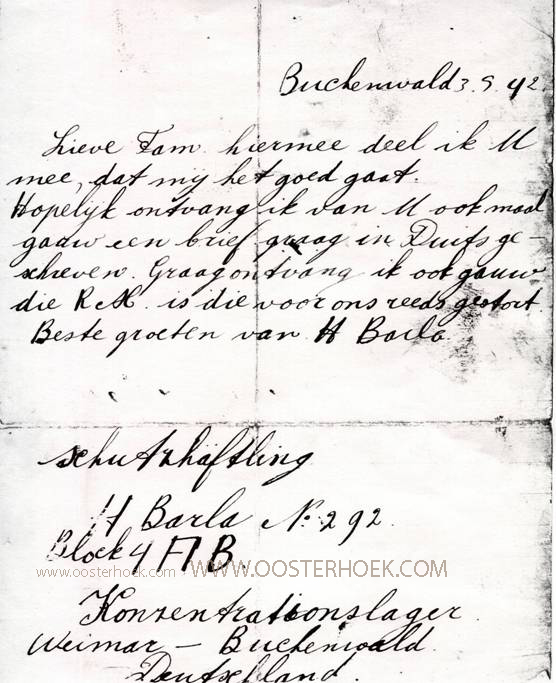 Buchenwald 3.9.42.
Lieve Fam. hiermee deel ik U
mee, dat mij het goed gaat.
Hopelijk ontvang ik van U ook maal
gauw een brief graag in Duits ge-
schreven. Graag ontvang ik ook gauw
die R.M. is die voor ons reeds gestort
Beste groeten van H Barla
schutzhäftling
H Barla No. 292.
Block 4 A B.
www.oosterhoek.com WWW.OOSTERHOEK.COM
Konzentrationslager.
Weimar – Buchenwald.
Deutschland.